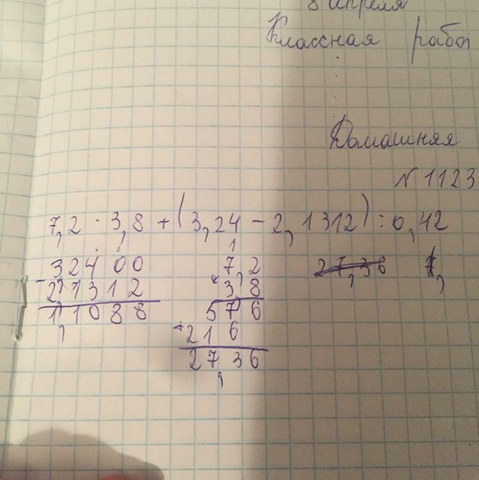 8 апреля
Классная работ
Домашняя
N 1123
7,2 · 3,8 + (3,24 - 2,1312) : 0,42
32400 7,2 27,36 1,
- 21312 × 3,8
1,1088 576
+ 216
27,36